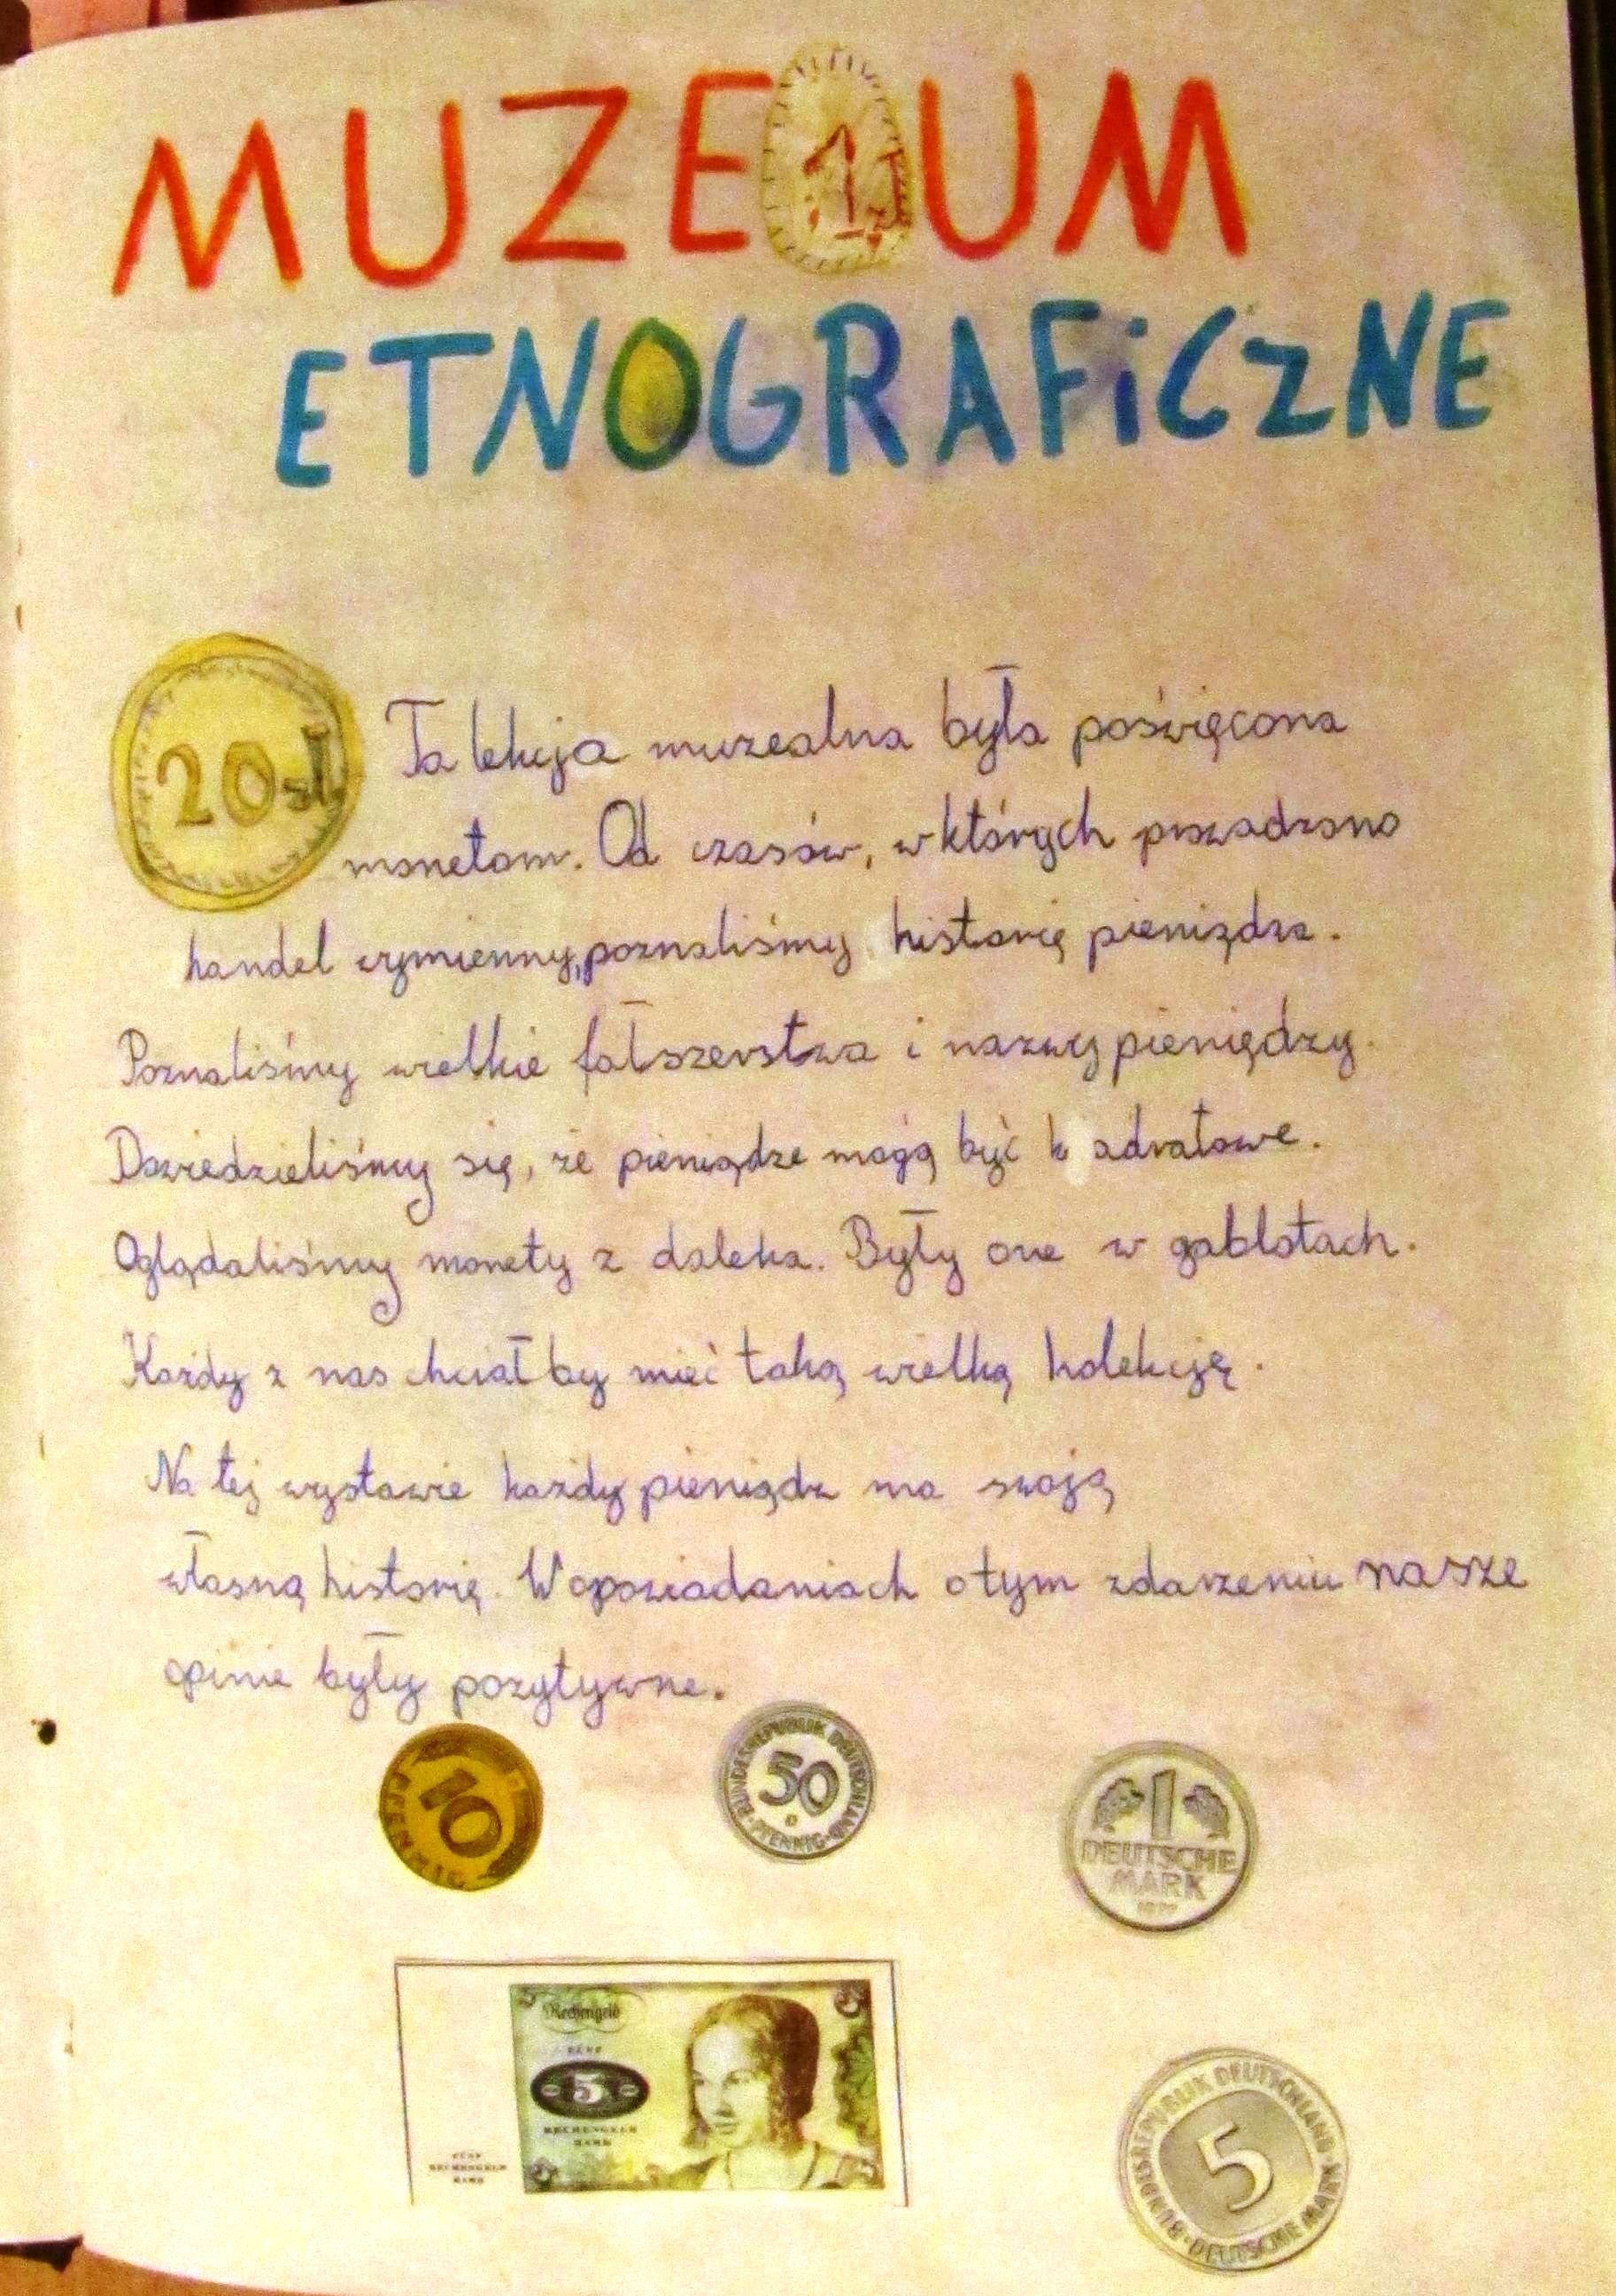 MUZEUM
1 zł
ETNOGRAFiCZNE
20 zł
Ta lekcja muzealna była poświęcona
monetom. Od czasów, w których prowadzono
handel wymienny, poznaliśmy historię pieniądza.
Poznaliśmy wielkie fałszerstwa i nazwy pieniędzy.
Dowiedzieliśmy się, że pieniądze mogą być k adratowe.
Oglądaliśmy monety z daleka. Były one w gablotach.
Każdy z nas chciał by mieć taką wielką kolekcję.
Na tej wystawie każdy pieniądz ma swoją
własną historię. W opowiadaniach o tym zdarzeniu nasze
opinie były pozytywne.
10
PFENNIG
BUNDESREPUBLIK DEUTSCHLAND
50
PFENNIG
1
DEUTSCHE
MARK
5
Rechengeld
FÜNF
5
RECHENGELD
MARK
FÜNF
RECHENGELD
MARK
BUNDESREPUBLIK DEUTSCHLAND
5
DEUTSCHE MARK